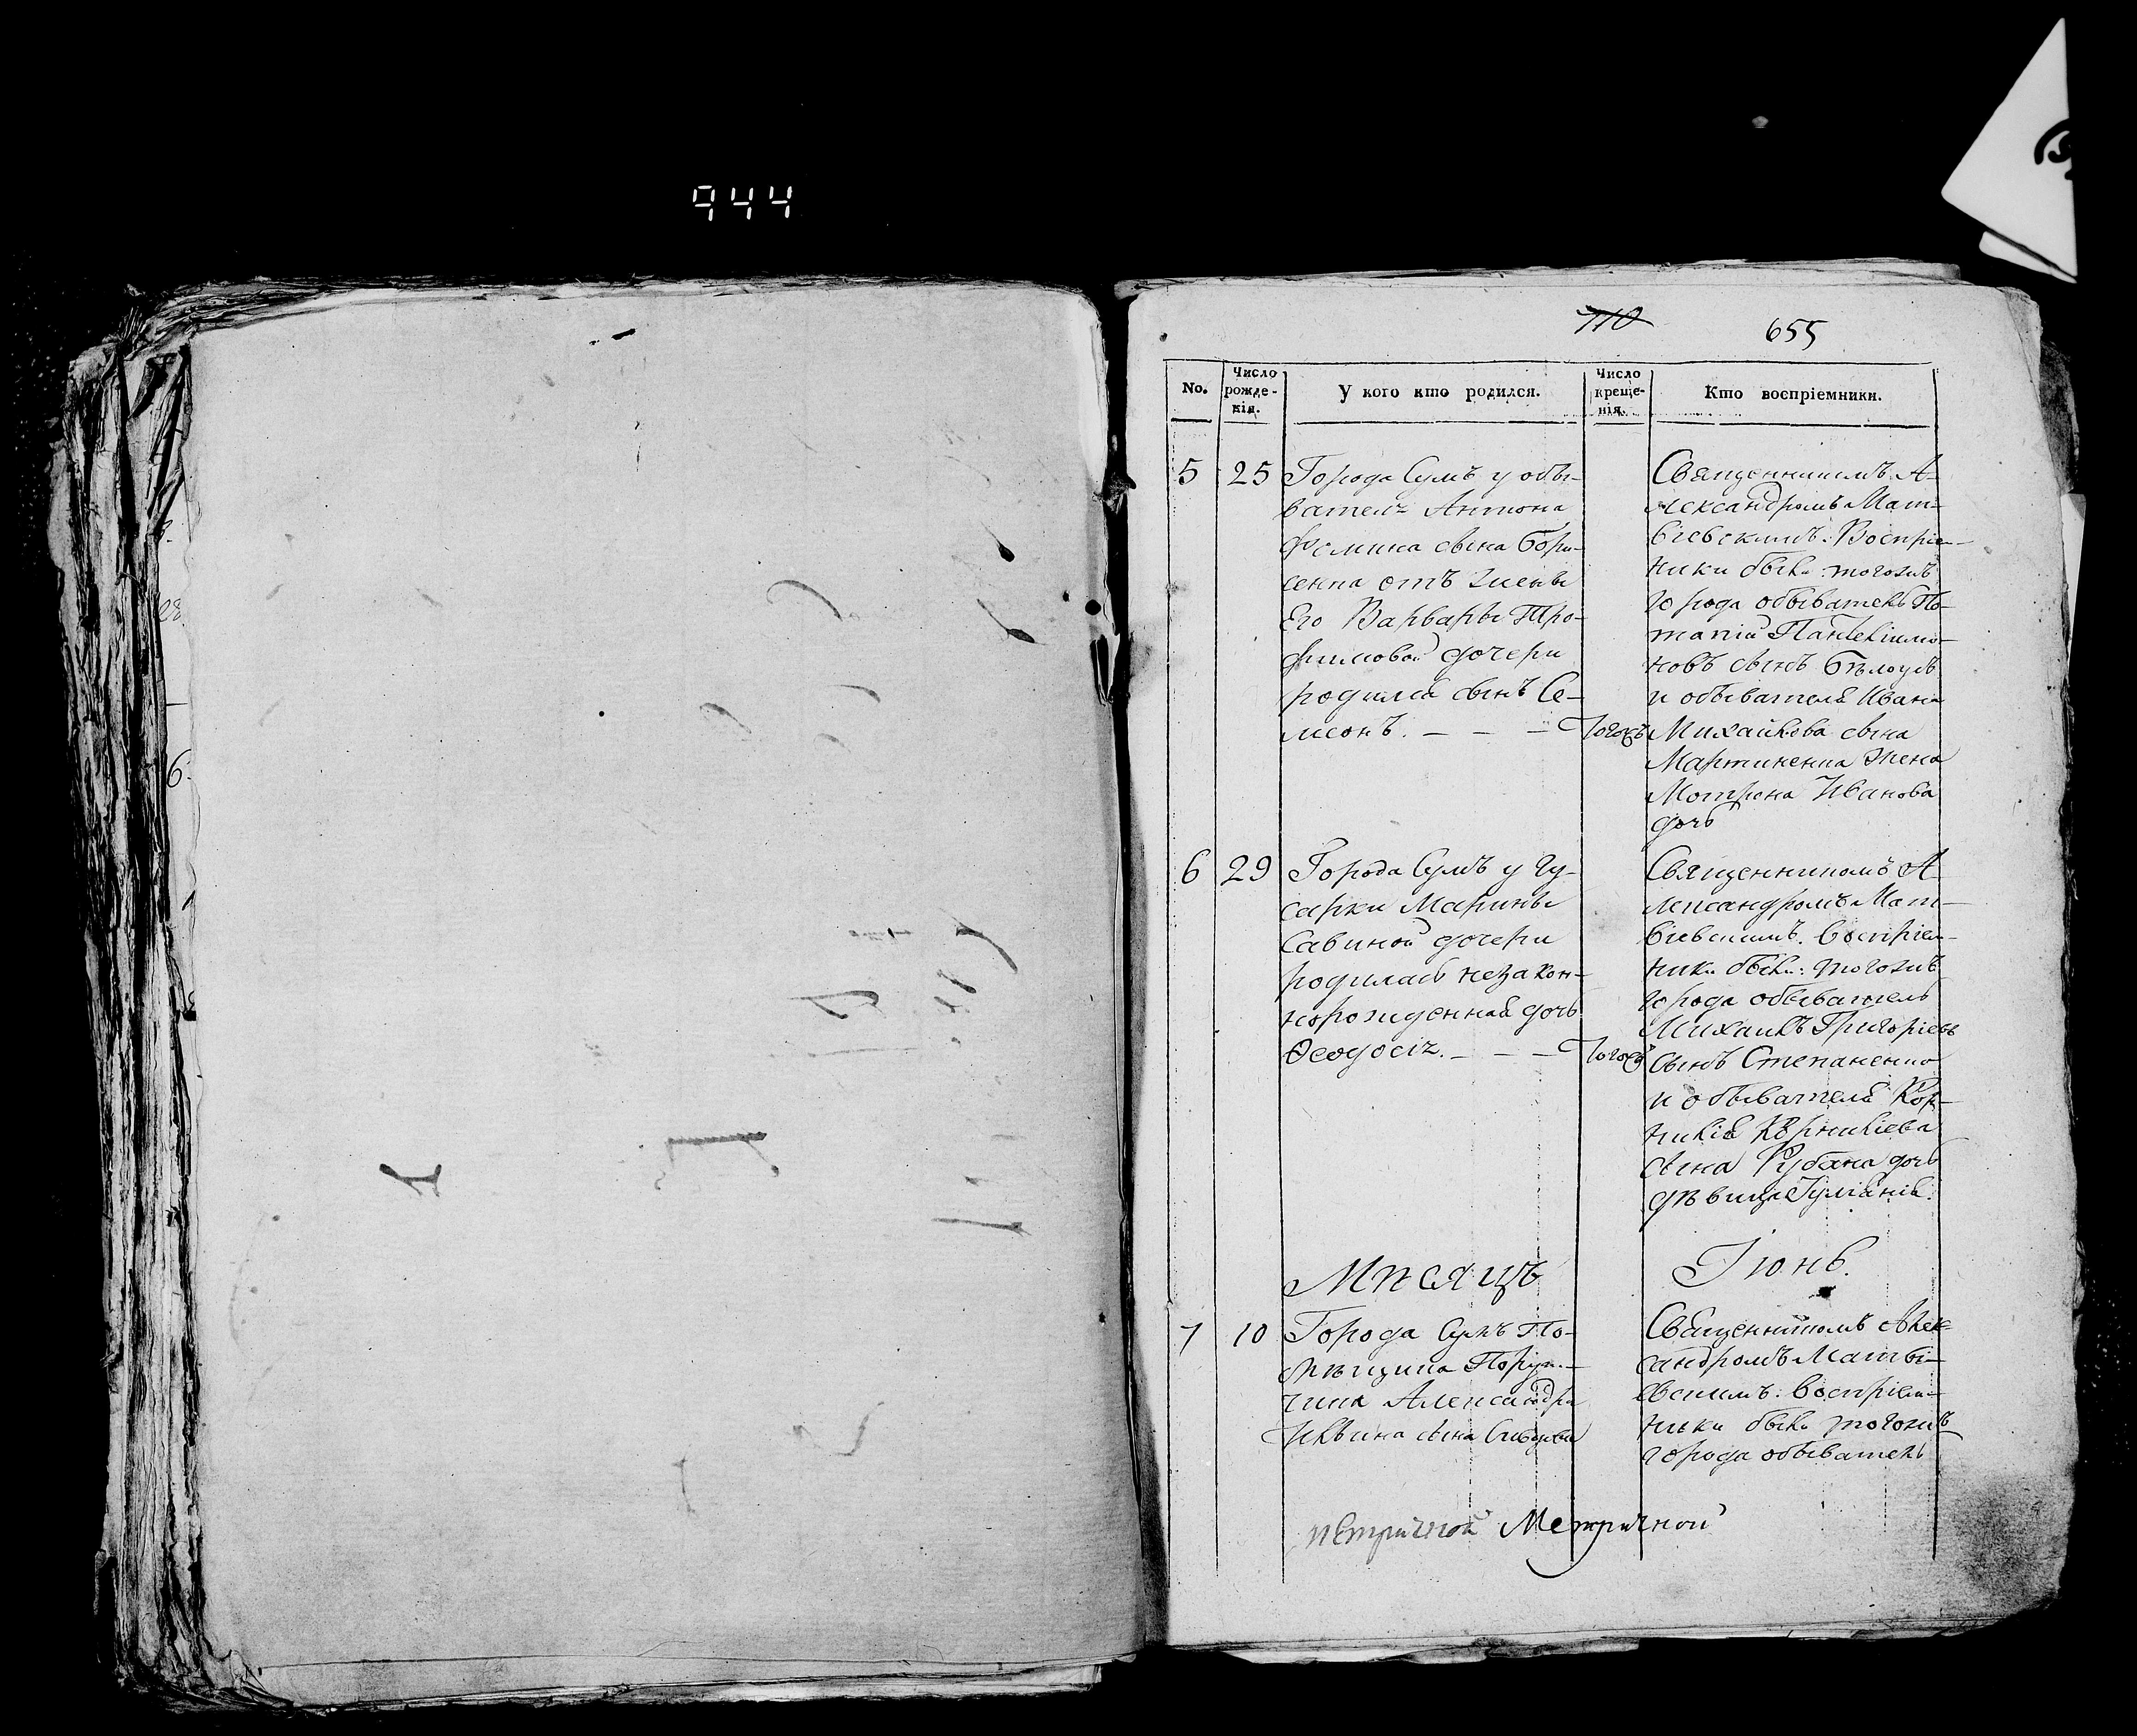 944
110 655
No. Число рожде-нія. У кого кто родился. Число креще-нія. Кто воспріемники.
5 25
Города Сумъ у обы-
вателя Антона
Фомина сына Бори-
сенка отъ жены
Его Варвары Тро-
фимовой дочери
родился сынъ Се-
меонъ. — — —
Тогожъ
Священникомъ А-
лександромъ Мат-
віевскимъ. Воспріем-
ники были: тогожъ
города обыватель По-
тапій Пантеліимо-
новъ сынъ Бѣлоусъ
и обывателя Ивана
Михайлова сына
Мартиненка жена
Мотрона Иванова
дочь
6 29
Города Сумъ у Гу-
сарки Марины
Савиной дочери
родилась незакон-
норожденная дочь
Ѳеодосія. — — —
Тогожъ
Священникомъ А-
лександромъ Мат-
віевскимъ. Воспріем-
ники были: тогожъ
города обыватель
Михаилъ Григоріевъ
сынъ Степаненко
и обывателя Кор-
нилія Корниліева
сына Рубана дочь
дѣвица
Мѣсяцъ Іюнь.
7 10
Города Сумъ По-
мѣщика Порут-
чика Александра
сына
Священникомъ Алек-
сандромъ Матві-
евскимъ. Воспріем-
ники были тогожъ
города обыватель
метричной Метричной